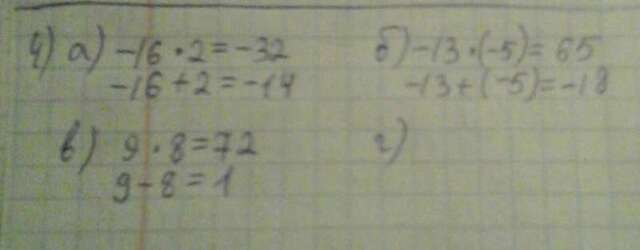 4) а) -16 · 2 = -32
-16 + 2 = -14
б) -13 · (-5) = 65
-13 + (-5) = -18
в) 9 · 8 = 72
9 - 8 = 1
г)